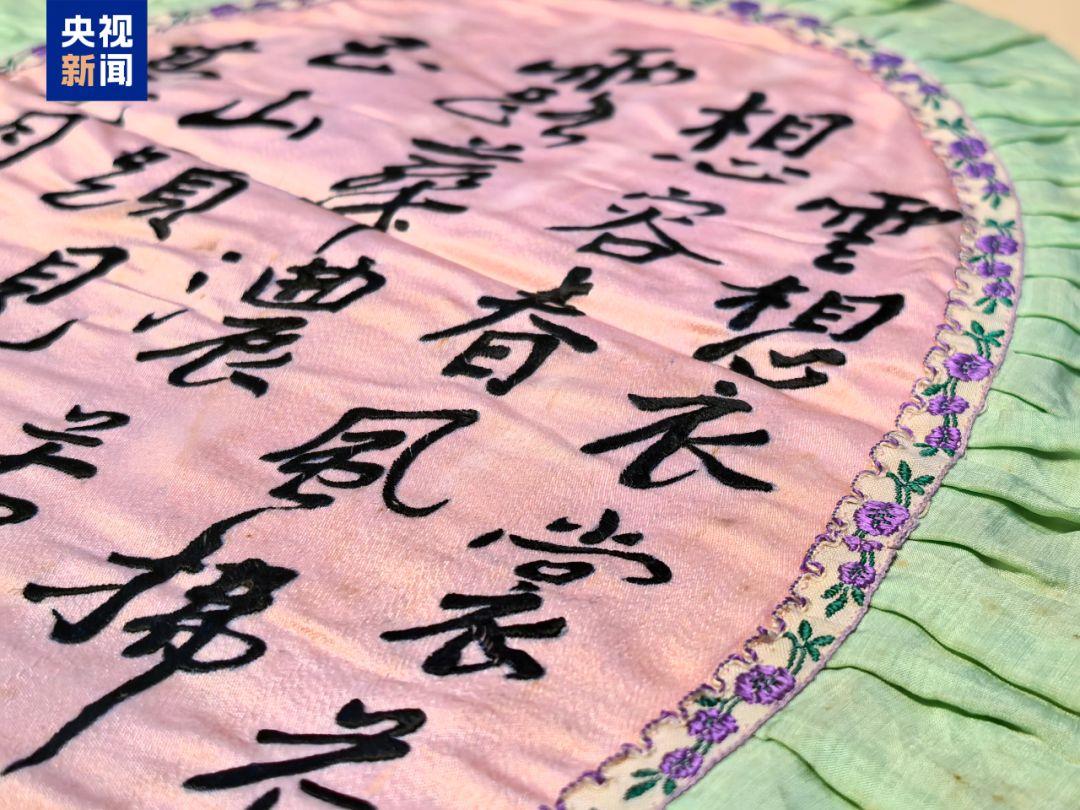 央视
新闻
雲想衣裳花
想容春風拂
露華濃若
玉山頭見
月